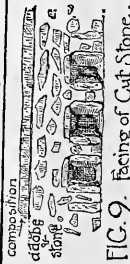 composition
adobe
&
stone.
FIG. 9. Facing of Cut Stone.